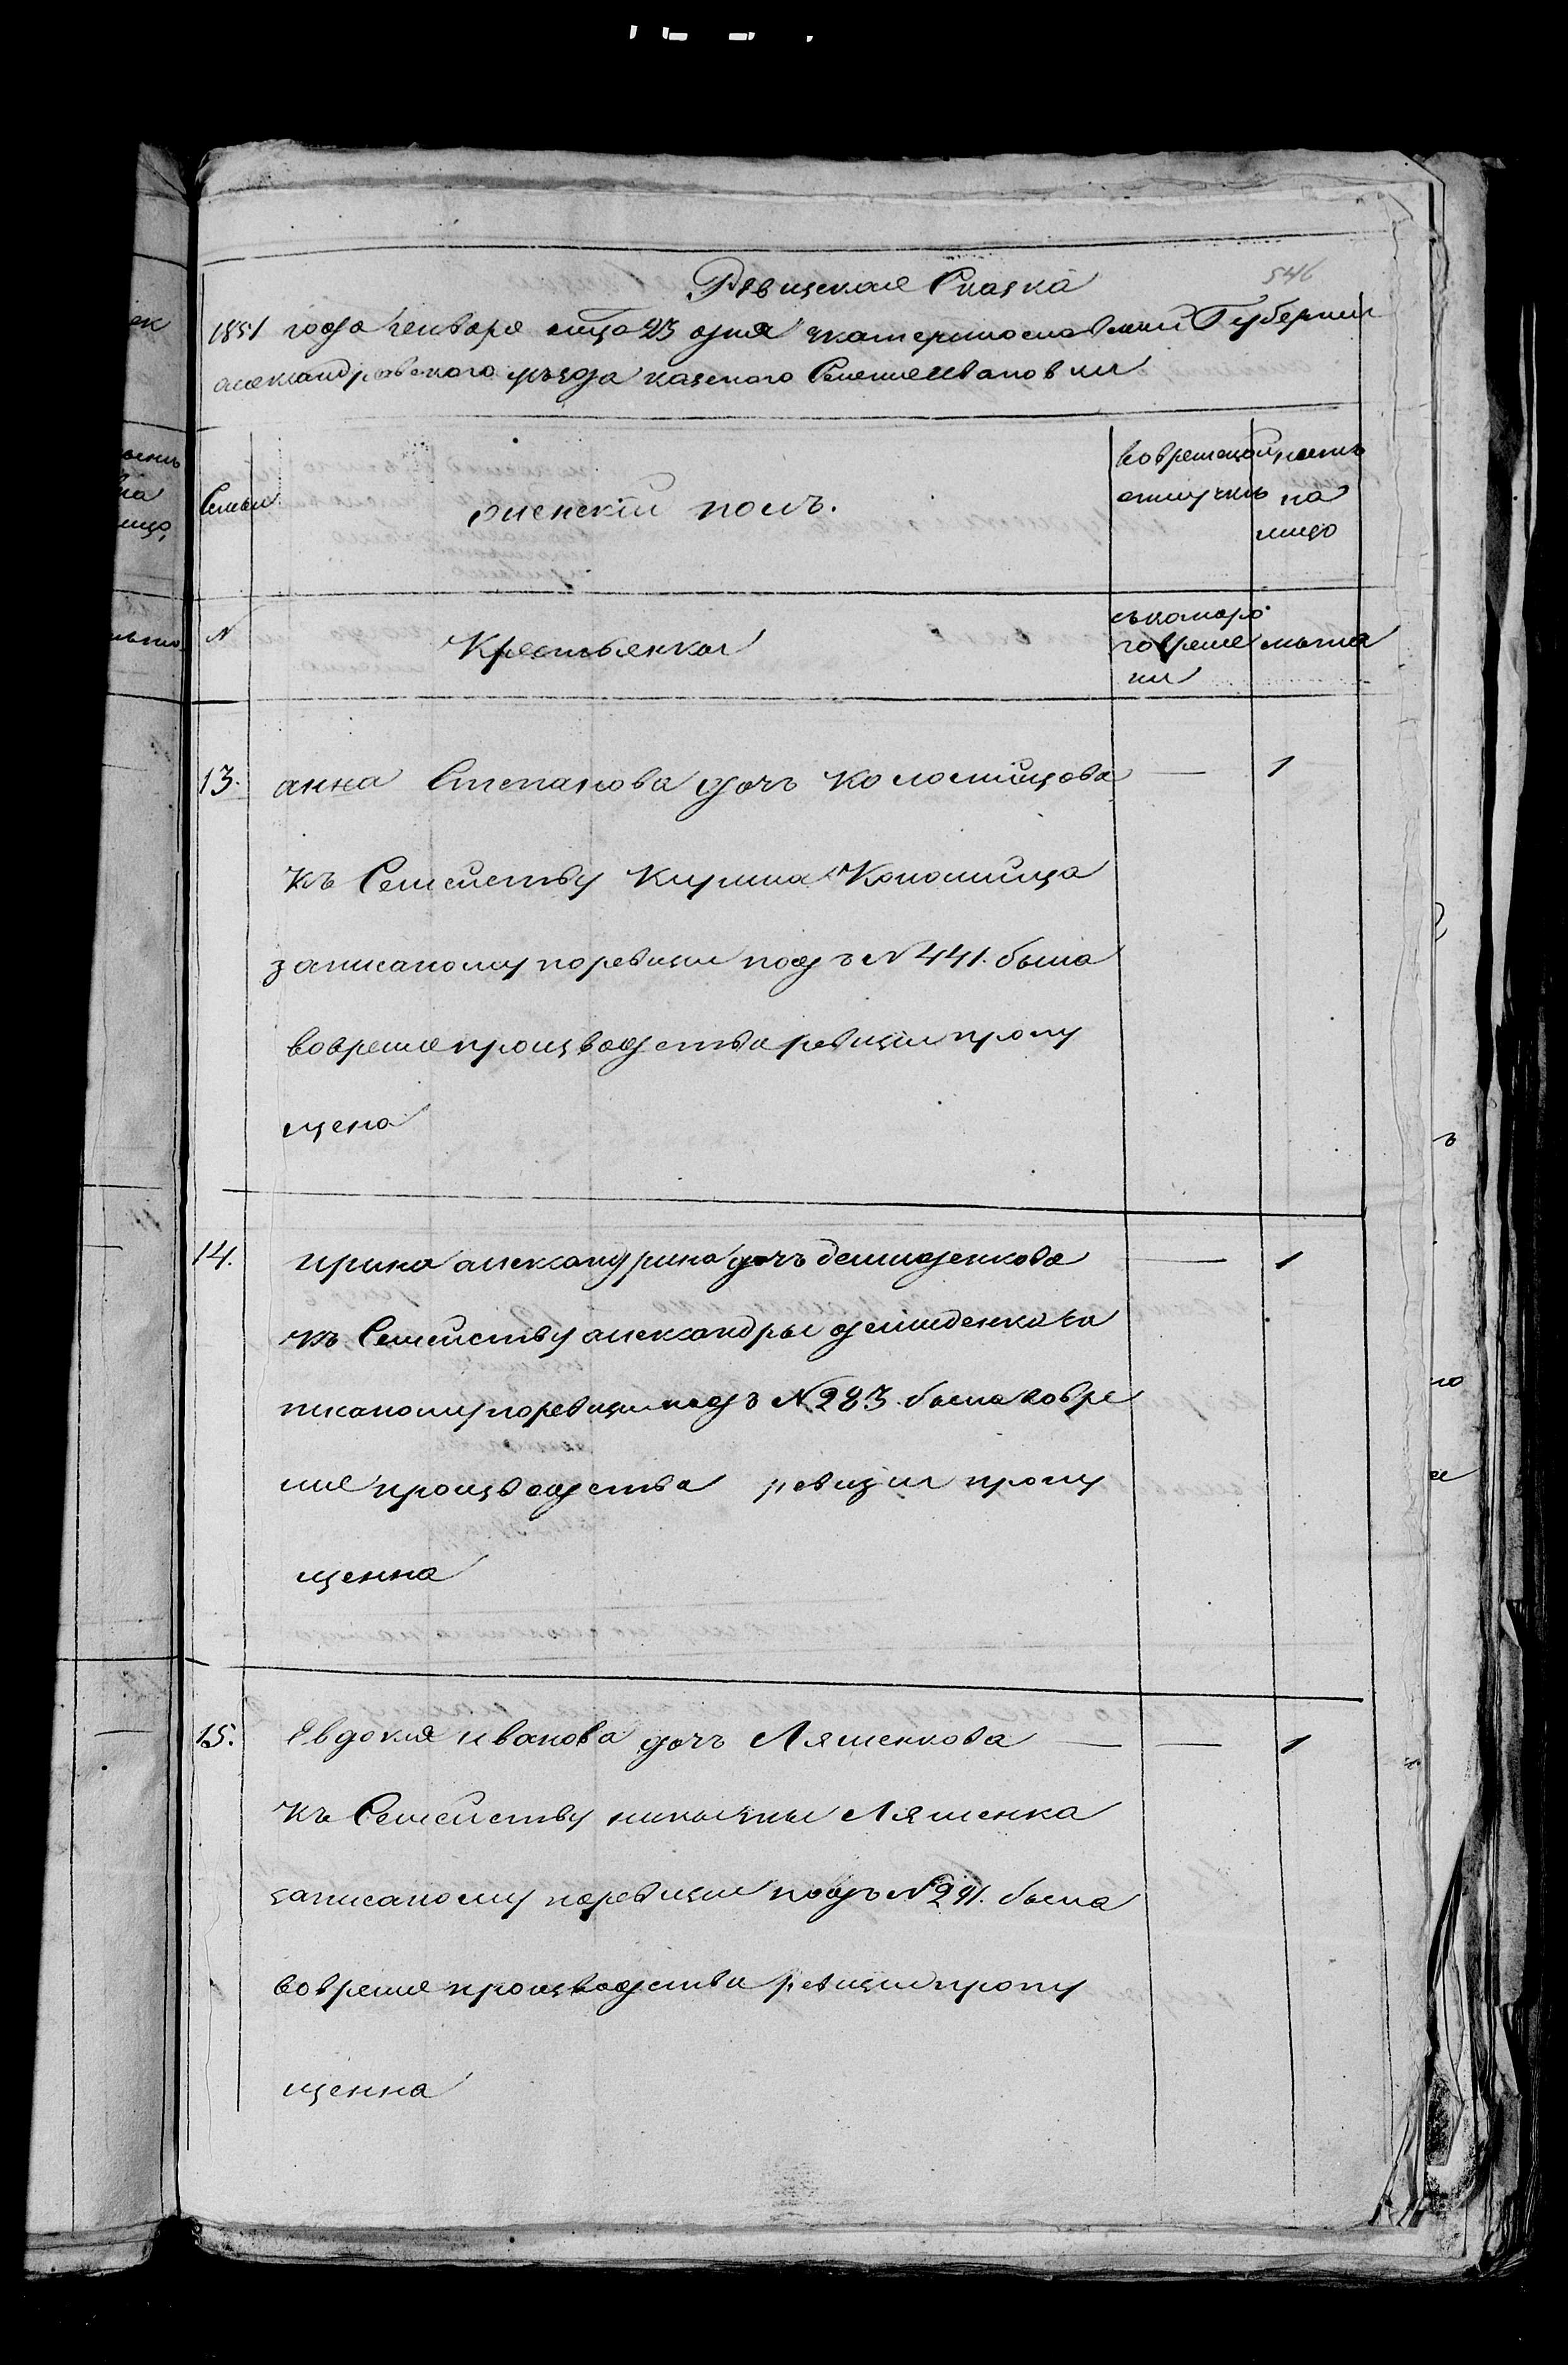 546
Ревизская Сказка
1851 года Генваря мца 23 дня Екатеринославской Губернии
александровского уезда казеного Селения Ивановки
Семьи
женскій полъ.
вовременой
отлучки
на
лицо
N
Крестьянки
съкоторо
говреме
ни
лета
13. анна Степанова дочъ Коломийцова — 1
Къ Семейству Кирила Коломийца
записаному поревизии подъ N 441. была
вовремя производства ревизии пропу
щена
14. ирина александрина дочъ демиденкова — 1
Къ Семейству александры демиденкова
писаному поревизии подъ N 283. была вовре
мя производства ревизии пропу
щенна
15. Евдокия иванова дочъ Ляшенкова — — 1
Къ Семейству Ляшенка
записаному поревизии подъ N 291. была
вовремя производства ревизии пропу
щенна